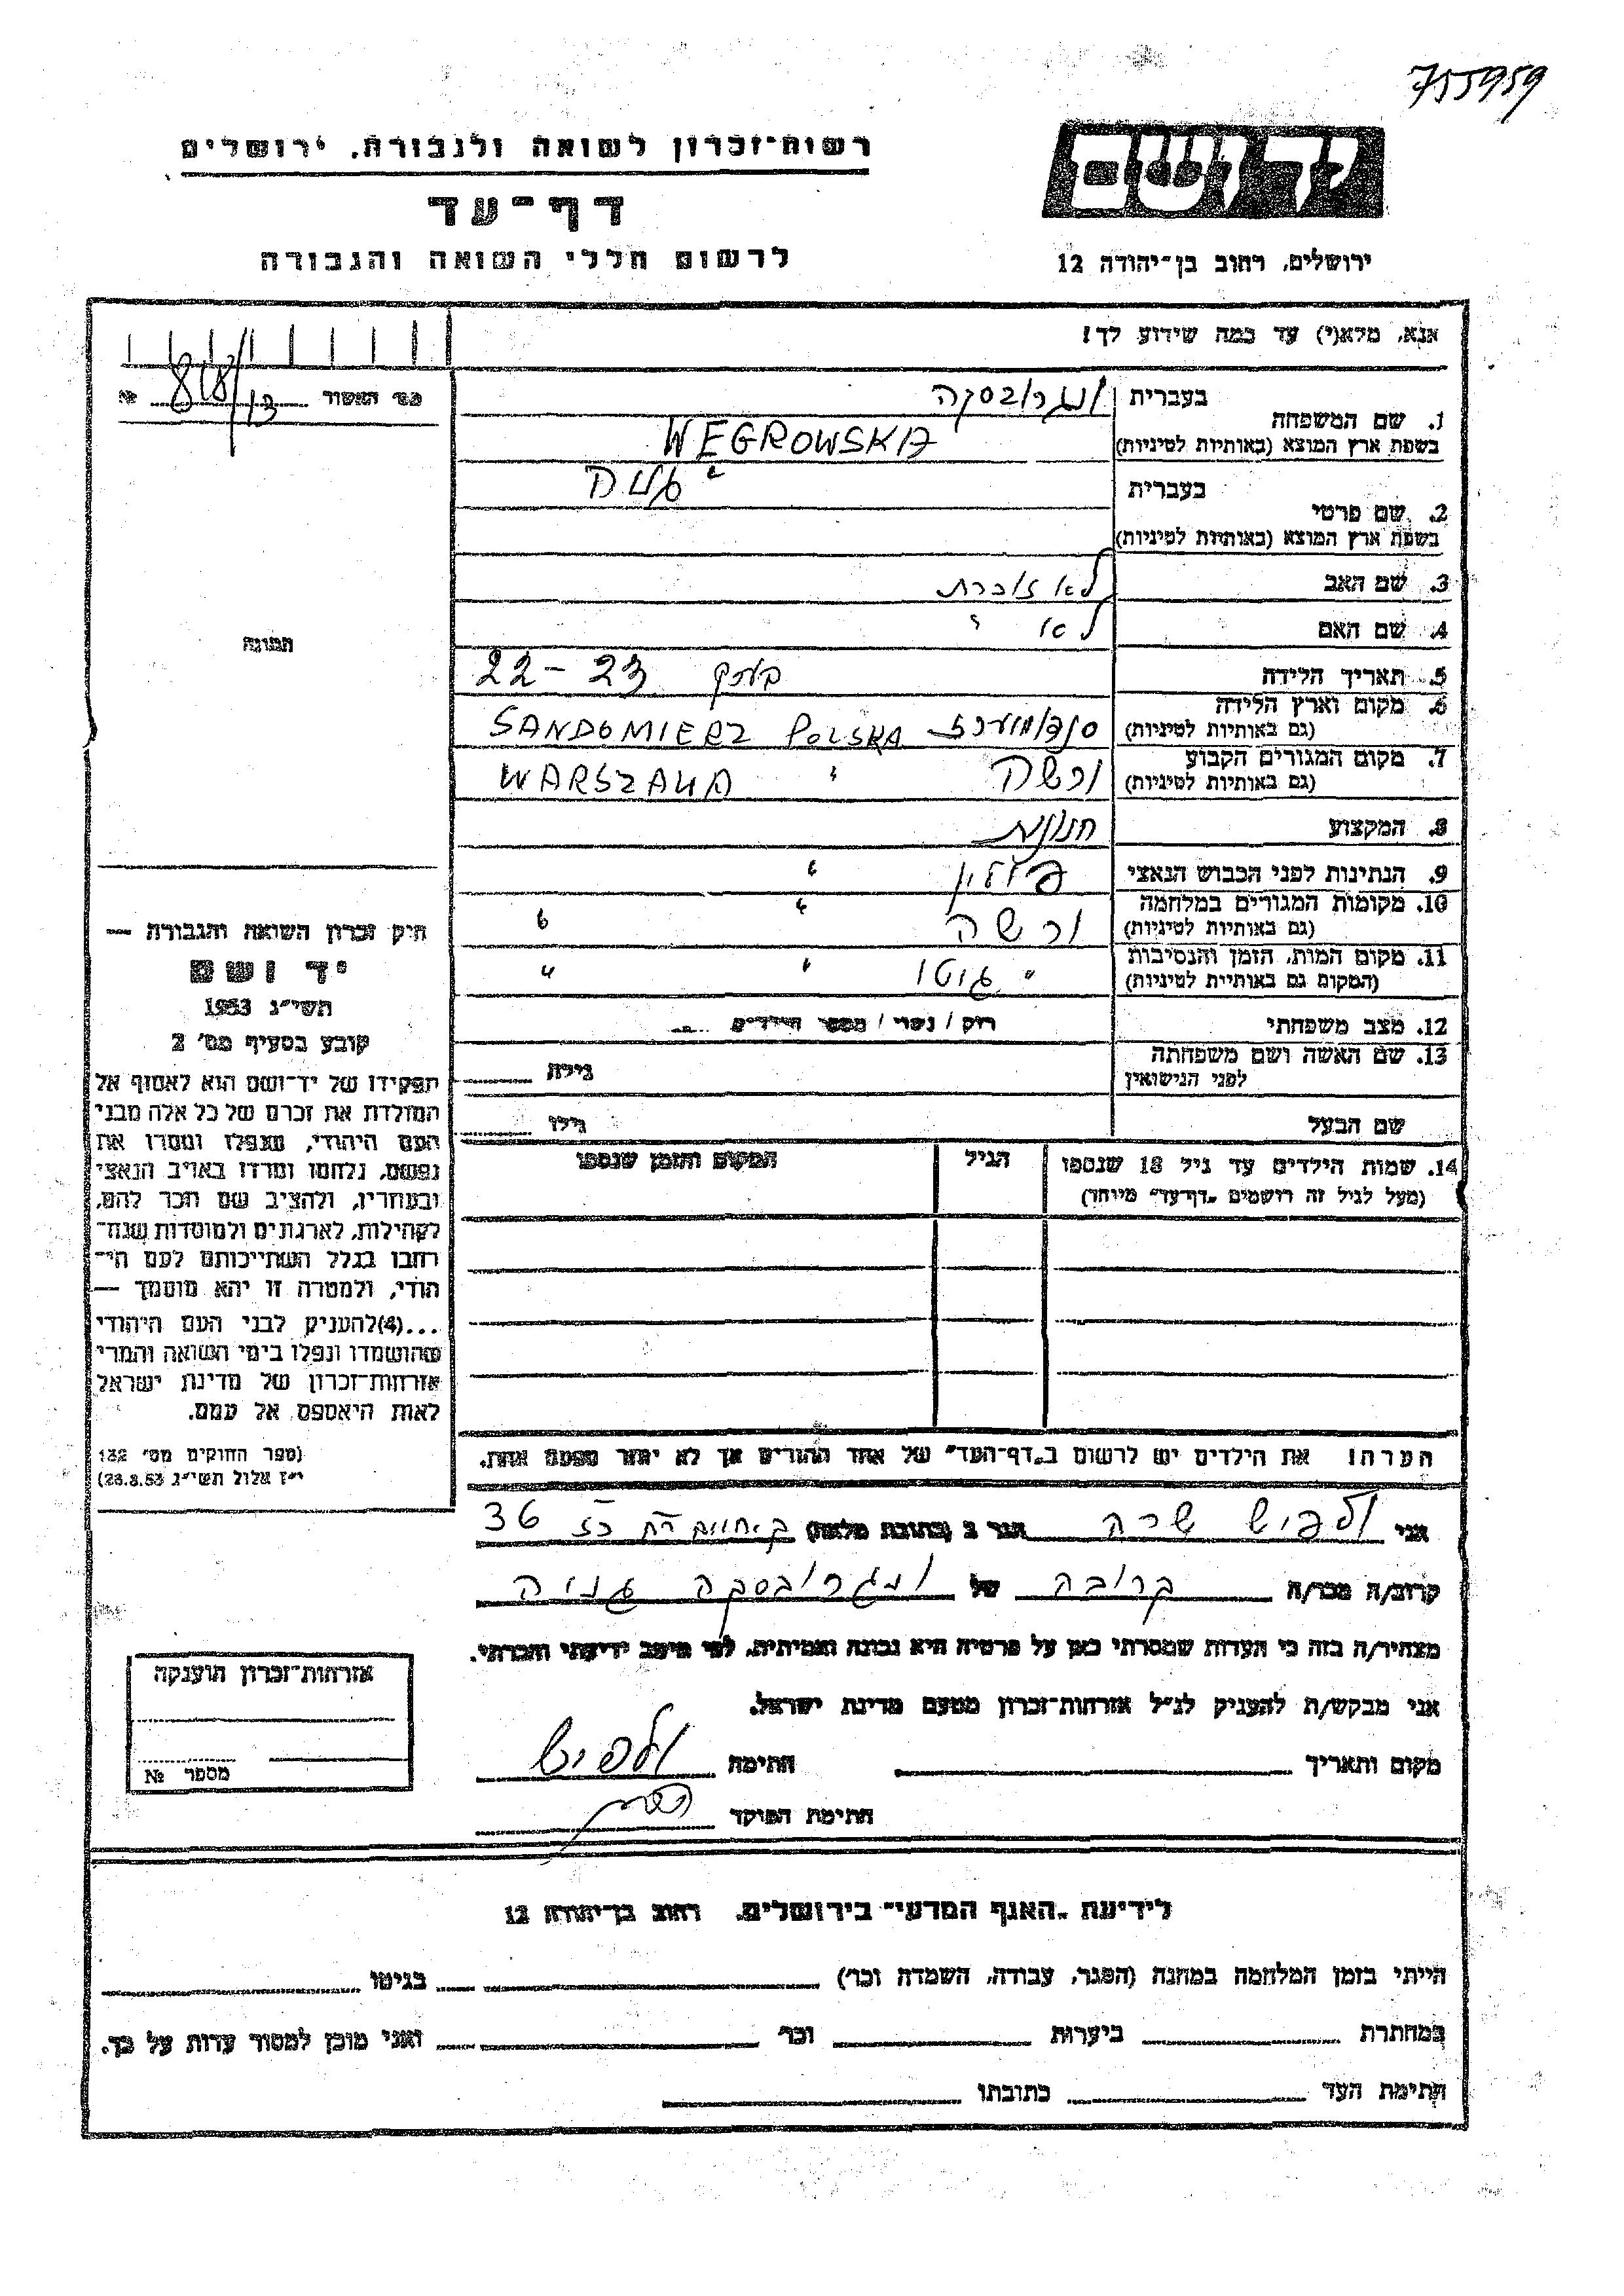 755959
יד ושם
רשות-זכרון לשואה ולגבורה, ירושלים
דף-עד
לרשום חללי השואה והגבורה
ירושלים, רחוב בן-יהודה 12
אנא, מלא(י) עד כמה שידוע לך!
1. שם המשפחה בעברית ונגרובסקה
בשפת ארץ המוצא (באותיות לטיניות) WEGROWSKA
2. שם פרטי בעברית
בשפת ארץ המוצא (באותיות לטיניות)
3. שם האב לא זוכרת
4. שם האם לא "
5. תאריך הלידה בערך 22-23
6. מקום וארץ הלידה
(גם באותיות לטיניות) SANDOMIERZ POLSKA
7. מקום המגורים הקבוע ורשה "
(גם באותיות לטיניות) WARSZAWA
8. המקצוע
9. הנתינות לפני הכבוש הנאצי פולין "
10. מקומות המגורים במלחמה ורשה " "
(גם באותיות לטיניות)
11. מקום המות, הזמן והנסיבות " גיטו " "
(המקום גם באותיות לטיניות)
12. מצב משפחתי רוק / נשוי / מספר הילדים
13. שם האשה ושם משפחתה
לפני הנישואין גילה
שם הבעל גילו
14. שמות הילדים עד גיל 18 שנספו הגיל המקום והזמן שנספו
(מעל לגיל זה רושמים „דף-עד" מיוחד)
הערה: את הילדים יש לרשום ב„דף-העד" של אחד ההורים אך לא יותר מפעם אחת.
מס' האשור №
תמונה
חוק זכרון השואה והגבורה —
יד ושם
תשי"ג 1953
קובע בסעיף מס' 2
תפקידו של יד-ושם הוא לאסוף אל
המולדת את זכרם של כל אלה מבני
העם היהודי, שנפלו ומסרו את
נפשם, נלחמו ומרדו באויב הנאצי
ובעוזריו, ולהציב שם וזכר להם,
לקהילות, לארגונים ולמוסדות שנח-
רבו בגלל השתייכותם לעם הי-
הודי, ולמטרה זו יהא מוסמך —
...(4) להעניק לבני העם היהודי
שהושמדו ונפלו בימי השואה והמרי
אזרחות-זכרון של מדינת ישראל
לאות היאספם אל עמם.
(ספר החוקים מס' 132
י"ז אלול תשי"ג 28.8.53)
אני ולפיש שרה הגר ב (כתובת מלאה) 36
קרוב/ה מכר/ה קרובה של ונגרובסקה
מצהיר/ה בזה כי העדות שמסרתי כאן על פרטיה היא נכונה ואמיתית, לפי מיטב ידיעתי והכרתי.
אני מבקש/ת להעניק לנ"ל אזרחות-זכרון מטעם מדינת ישראל.
מקום ותאריך חתימה ולפיש
חתימת הפוקד
אזרחות-זכרון הוענקה
מספר №
לידיעת „האגף המדעי" בירושלים, רחוב בן-יהודה 12
הייתי בזמן המלחמה במחנה (הסגר, עבודה, השמדה וכו') בגיטו
במחתרת ביערות וכו' ואני מוכן למסור עדות על כך.
חתימת העד כתובתו